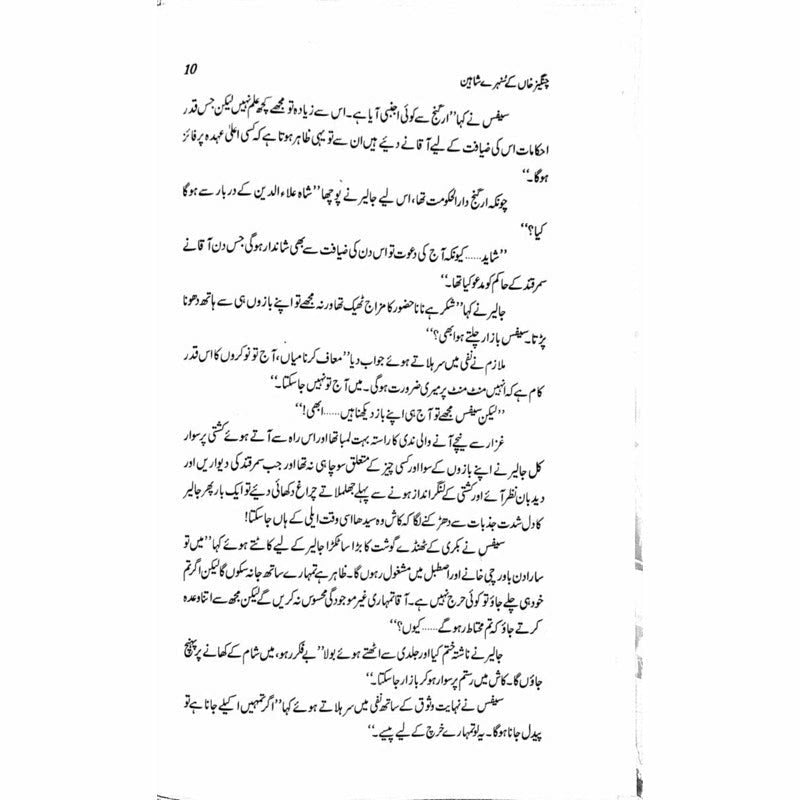 10
چنگیز خاں کے سنہرے شاہین
سیفس نے کہا ’’ارگنج سے کوئی اجنبی آیا ہے۔ اس سے زیادہ تو مجھے کچھ علم نہیں لیکن جس قدر
احکامات اس کی ضیافت کے لیے آقا نے دیئے ہیں ان سے تو یہی ظاہر ہوتا ہے کہ کسی اعلیٰ عہدہ پر فائز
ہوگا۔‘‘
چونکہ ارگنج دارالحکومت تھا، اس لیے جالیر نے پوچھا ’’شاہ علاء الدین کے دربار سے ہوگا
کیا؟‘‘
’’شاید......کیونکہ آج کی دعوت تو اس دن کی ضیافت سے بھی شاندار ہوگی جس دن آقا نے
سمرقند کے حاکم کو مدعو کیا تھا۔‘‘
جالیر نے کہا ’’شکر ہے نانا حضور کا مزاج ٹھیک تھا ورنہ مجھے تو اپنے بازوں ہی سے ہاتھ دھونا
پڑتا۔ سیفس بازار چلتے ہو ابھی؟‘‘
ملازم نے نفی میں سر ہلاتے ہوئے جواب دیا ’’معاف کرنا میاں، آج تو نوکروں کا اس قدر
کام ہے کہ انہیں منٹ منٹ پر میری ضرورت ہوگی۔ میں آج تو نہیں جاسکتا۔‘‘
’’لیکن سیفس مجھے تو آج ہی اپنے باز دیکھنا ہیں......ابھی!‘‘
غزار سے نیچے آنے والی ندی کا راستہ بہت لمبا تھا اور اس راہ سے آتے ہوئے کشتی پر سوار
کل جالیر نے اپنے بازوں کے سوا اور کسی چیز کے متعلق سوچا ہی نہ تھا اور جب سمرقند کی دیواریں اور
دیدبان نظر آئے اور کشتی کے لنگر انداز ہونے سے پہلے جھلملاتے چراغ دکھائی دیئے تو ایک بار پھر جالیر
کا دل شدت جذبات سے دھڑکنے لگا کہ کاش وہ سیدھا اسی وقت ایلی کے ہاں جاسکتا!
سیفس نے بکری کے ٹھنڈے گوشت کا بڑا سا ٹکڑا جالیر کے لیے کاٹتے ہوئے کہا ’’میں تو
سارا دن باورچی خانے اور اصطبل میں مشغول رہوں گا۔ ظاہر ہے تمہارے ساتھ جا نہ سکوں گا لیکن اگر تم
خود ہی چلے جاؤ تو کوئی حرج نہیں ہے۔ آقا تمہاری غیر موجودگی محسوس نہ کریں گے لیکن مجھ سے اتنا وعدہ
کرتے جاؤ کہ تم محتاط رہو گے......کیوں؟‘‘
جالیر نے ناشتہ ختم کیا اور جلدی سے اٹھتے ہوئے بولا ’’بے فکر رہو، میں شام کے کھانے پر پہنچ
جاؤں گا۔ کاش میں رستم پر سوار ہو کر بازار جاسکتا۔‘‘
سیفس نے نہایت وثوق کے ساتھ نفی میں سر ہلاتے ہوئے کہا ’’اگر تمہیں اکیلے جانا ہے تو
پیدل جانا ہوگا۔ یہ لو تمہارے خرچ کے لیے پیسے۔‘‘